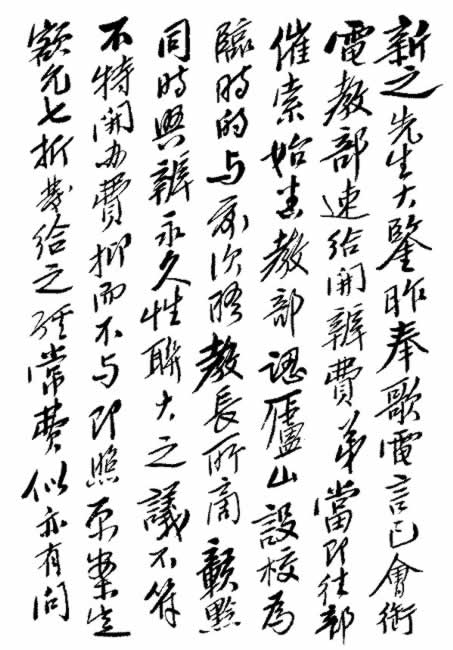 新之先生大鑒昨奉歌電言已會銜
電教部速給開辦費弟當即往部
催索始悉教部認廬山設校為
臨時的与次晤教長所商贛黔
同時興辦永久性聯大之議不符
不特開办費抑而不与即照原案定
額允七折發給之經常費似亦有問